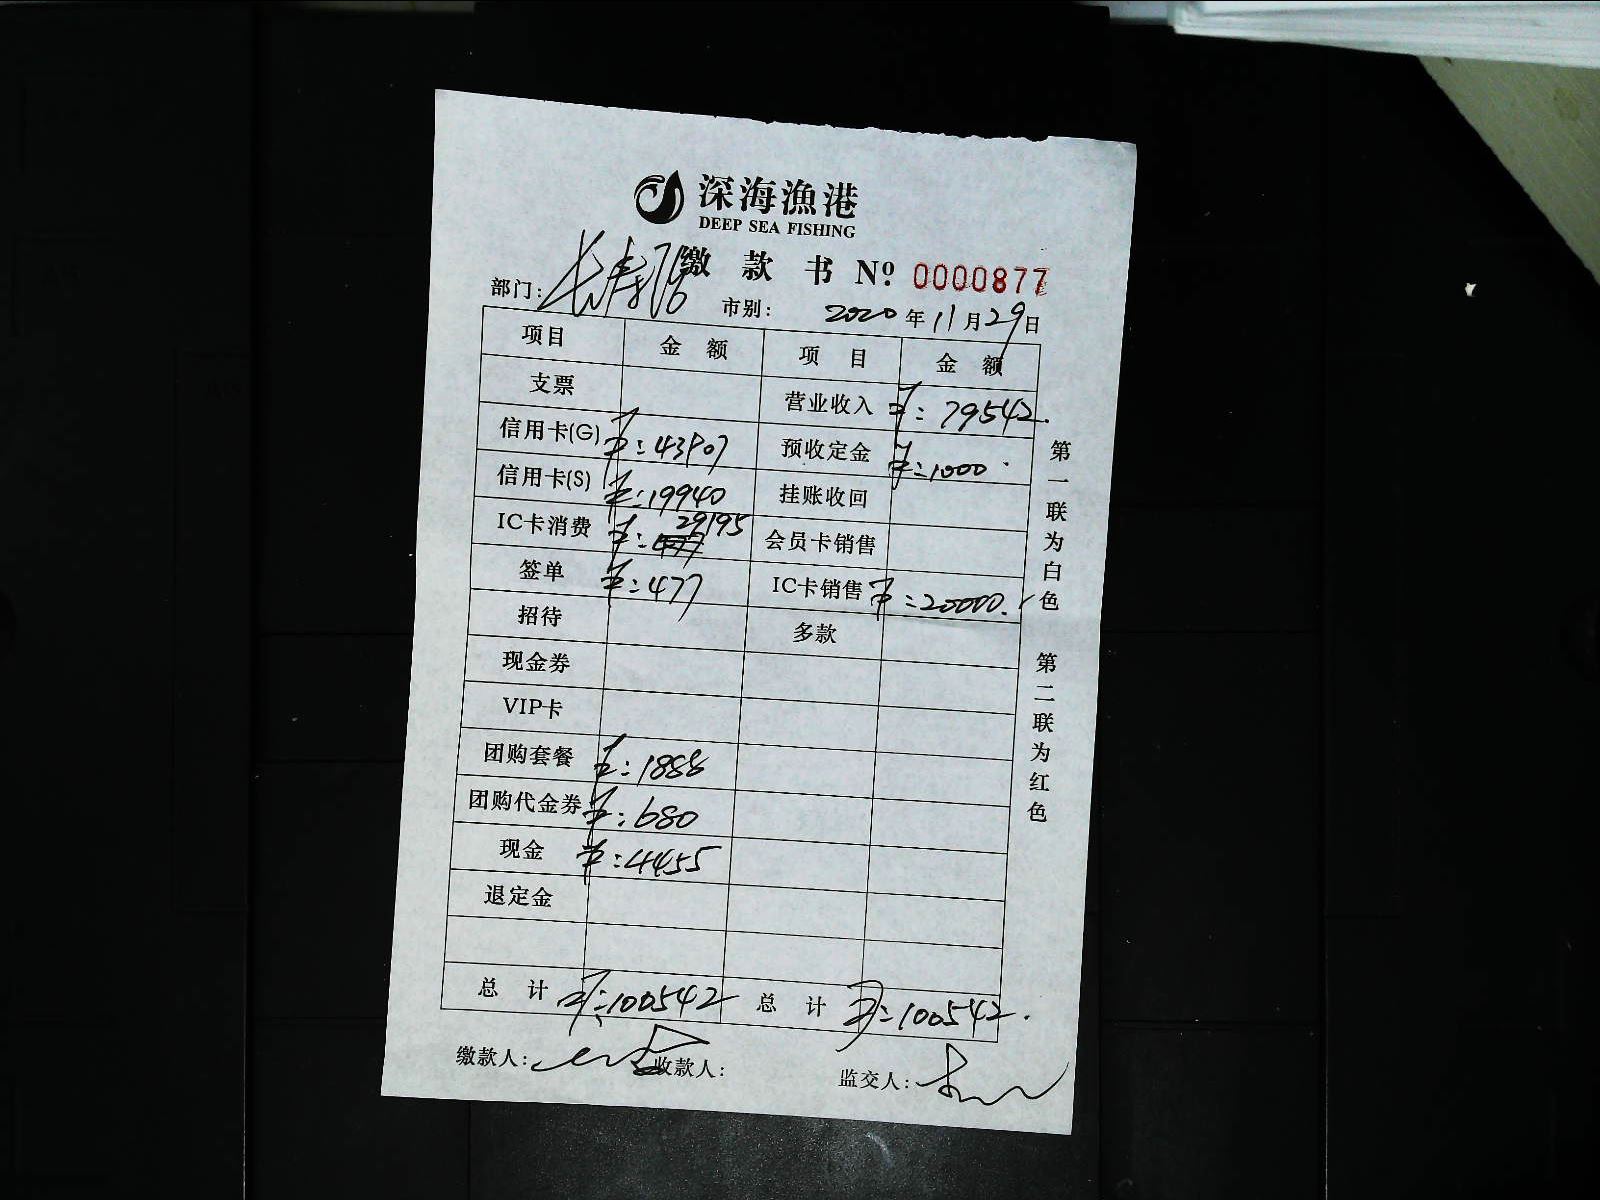 深海漁港
DEEP SEA FISHING
缴 款 书 Nº 0000877
部门: 市别: 2020年11月29日
项目 金 额 项 目 金 额
支票 营业收入 ¥:79542.
信用卡(G) ¥:43907 预收定金 ¥:1000
信用卡(S) ¥:19940 挂账收回
IC卡消费 ¥:29195 会员卡销售
签单 ¥:477 IC卡销售 ¥:20000.
招待 多款
现金券
VIP卡
团购套餐 ¥:1888
团购代金券 ¥:680
现金 ¥:4455
退定金
总 计 ¥:100542 总 计 ¥:100542.
缴款人: 收款人: 监交人:
第一联为白色
第二联为红色